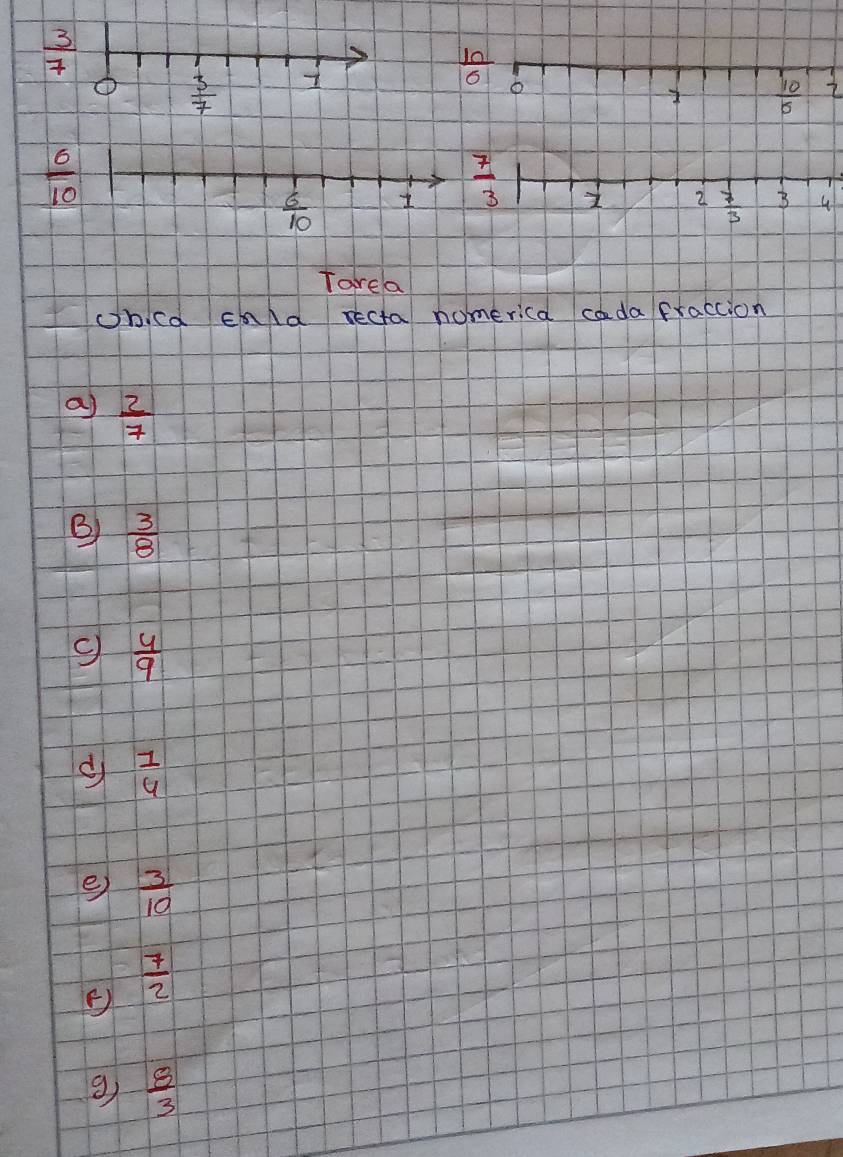 3/7 0 3/7 1
10/6 0 1 10/6 2
6/10 6/10 1
7/3 1 2 7/3 3 4
Tarea
Ubica En la recta numerica cada fraccion
a) 2/7
B) 3/8
c) 4/9
d) 1/4
e) 3/10
f) 7/2
g) 8/3